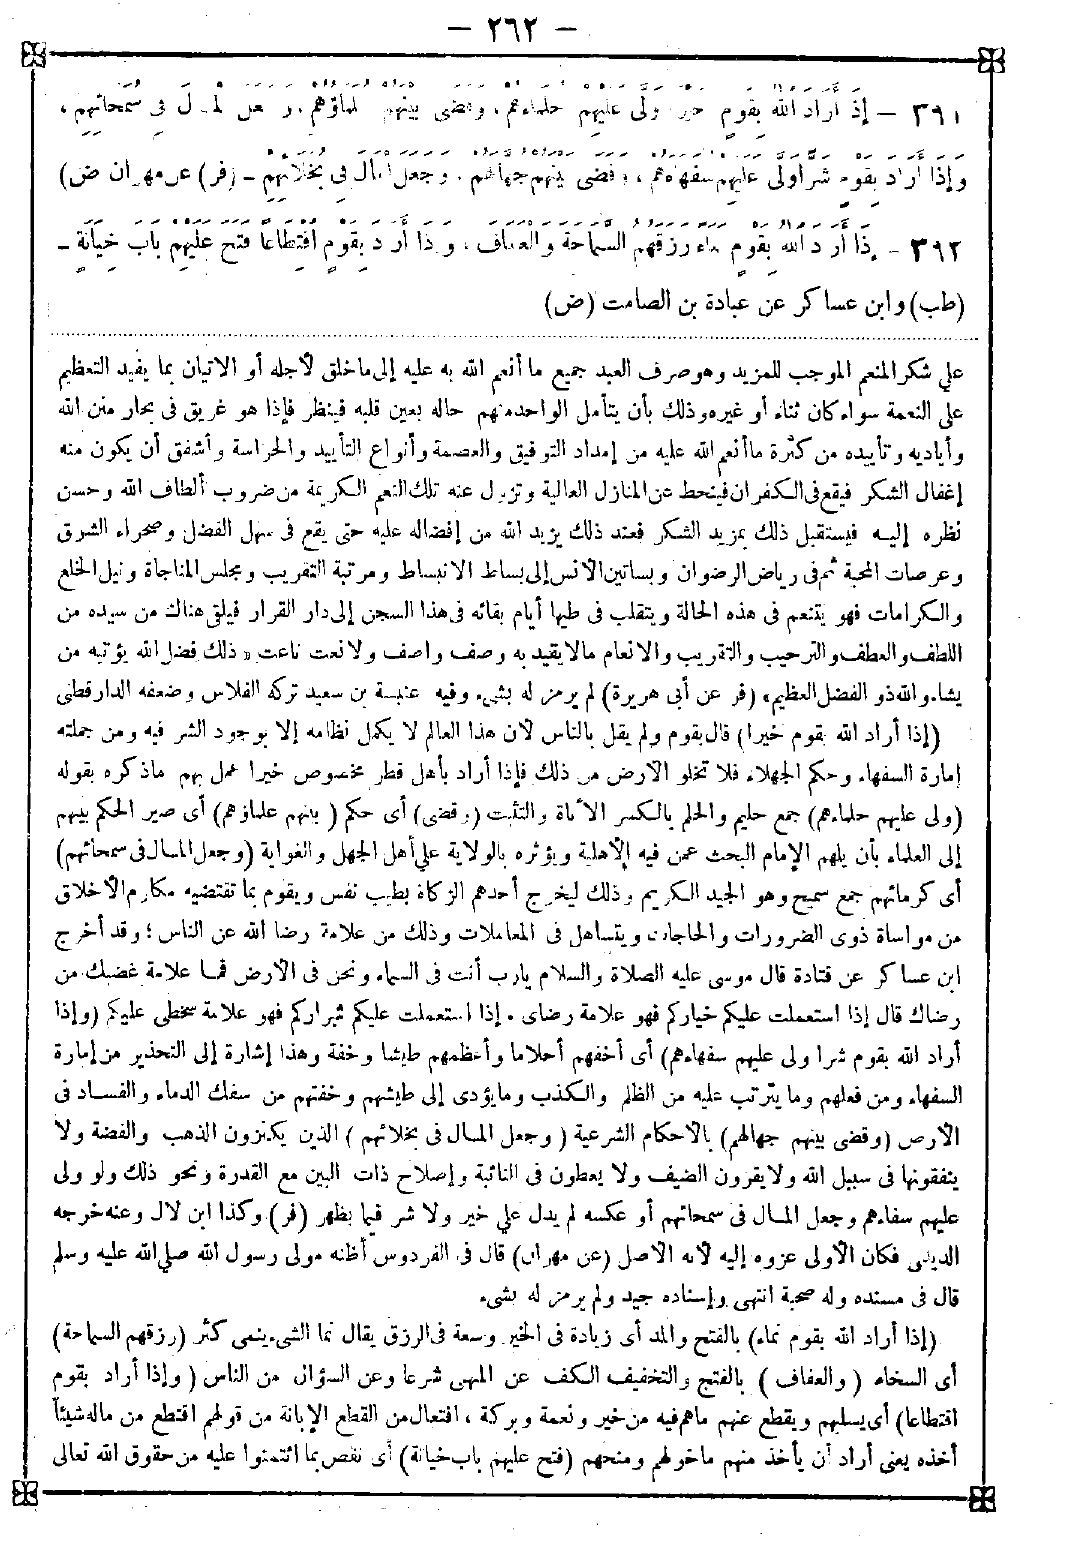 — ٢٦٢ —
٣٩١ — إذا أراد الله بقوم خيرا ولى عليهم حلماءهم، وقضى بينهم علماؤهم، وجعل المال في سمحائهم،
وإذا أراد بقوم شرا ولى عليهم سفهاءهم، وقضى بينهم جهالهم، وجعل المال في بخلائهم ـ (فر) عن مهران (ض)
٣٩٢ ـ إذا أراد الله بقوم نماء رزقهم السماحة والعفاف، وإذا أراد بقوم اقتطاعا فتح عليهم باب خيانة ـ
(طب) وابن عساكر عن عبادة بن الصامت (ض)
على شكر المنعم الموجب للمزيد وهو صرف العبد جميع ما أنعم الله به عليه إلى ما خلق لأجله أو الاتيان بما يفيد التعظيم
على النعمة سواء كان ثناء أو غيره وذلك بأن يتأمل الواحد منهم حاله بعين قلبه فينظر فإذا هو غريق فى بحار منن الله
وأياديه وتأييده من كثرة ما أنعم الله عليه من إمداد التوفيق والعصمة وأنواع التأييد والحراسة وأشفق أن يكون منه
إغفال الشكر فيقع فى الكفران فينحط عن المنازل العالية وتزول عنه تلك النعم الكريمة من ضروب ألطاف الله وحسن
نظره إليه فيستقبل ذلك بمزيد الشكر فعند ذلك يزيد الله من إفضاله عليه حتى يقع فى سهل الفضل وصحراء الشوق
وعرصات المحبة ثم فى رياض الرضوان وبساتين الأنس إلى بساط الانبساط ومرتبة التقريب ومجلس المناجاة ونيل الخلع
والكرامات فهو يتنعم فى هذه الحالة ويتقلب فى طيها أيام بقائه فى هذا السجن إلى دار القرار فيلقى هناك من سيده من
اللطف والعطف والترحيب والتقريب والانعام مالا يقيد به وصف واصف ولا نعت ناعت «ذلك فضل الله يؤتيه من
يشاء والله ذو الفضل العظيم» (فر عن أبى هريرة) لم يرمز له بشىء وفيه عنبسة بن سعيد تركه الفلاس وضعفه الدارقطنى
(إذا أراد الله بقوم خيرا) قال بقوم ولم يقل بالناس لأن هذا العالم لا يكمل نظامه إلا بوجود الشر فيه ومن جملته
إمارة السفهاء وحكم الجهلاء فلا تخلو الأرض من ذلك فإذا أراد بأهل قطر مخصوص خيرا عمل بهم ما ذكره بقوله
(ولى عليهم حلماءهم) جمع حليم والحلم بالكسر الأناة والتثبت (وقضى) أى حكم (بينهم علماؤهم) أى صير الحكم بينهم
إلى العلماء بأن يلهم الإمام البحث عمن فيه الأهلية ويؤثره بالولاية على أهل الجهل والغواية (وجعل المال فى سمحائهم)
أى كرمائهم جمع سميح وهو الجيد الكريم وذلك ليخرج أحدهم الزكاة بطيب نفس ويقوم بما تقتضيه مكارم الأخلاق
من مواساة ذوى الضرورات والحاجات ويتساهل فى المعاملات وذلك من علامة رضا الله عن الناس؛ وقد أخرج
ابن عساكر عن قتادة قال موسى عليه الصلاة والسلام يارب أنت فى السماء ونحن فى الأرض فما علامة غضبك من
رضاك قال إذا استعملت عليكم خياركم فهو علامة رضاى. إذا استعملت عليكم شراركم فهو علامة سخطى عليكم (وإذا
أراد الله بقوم شرا ولى عليهم سفهاءهم) أى أخفهم أحلاما وأعظمهم طيشا وخفة وهذا إشارة إلى التحذير من إمارة
السفهاء ومن فعلهم وما يترتب عليه من الظلم والكذب وما يؤدى إلى طيشهم وخفتهم من سفك الدماء والفساد فى
الأرض (وقضى بينهم جهالهم) بالأحكام الشرعية (وجعل المال فى بخلائهم) الذين يكنزون الذهب والفضة ولا
ينفقونها فى سبيل الله ولا يقرون الضيف ولا يعطون فى النائبة وإصلاح ذات البين مع القدرة ونحو ذلك ولو ولى
عليهم سفاءهم وجعل المال فى سمحائهم أو عكسه لم يدل على خير ولا شر فيما يظهر (فر) وكذا ابن لال وعنه خرجه
الديلمى فكان الأولى عزوه إليه لأنه الأصل (عن مهران) قال فى الفردوس أظنه مولى رسول الله صلى الله عليه وسلم
قال فى مسنده وله صحبة انتهى وإسناده جيد ولم يرمز له بشىء
(إذا أراد الله بقوم نماء) بالفتح والمد أى زيادة فى الخير وسعة فى الرزق يقال نما الشىء ينمى كثر (رزقهم السماحة)
أى السخاء (والعفاف) بالفتح والتخفيف الكف عن المنهى شرعا وعن السؤال من الناس (وإذا أراد بقوم
اقتطاعا) أى يسلبهم ويقطع عنهم ماهم فيه من خير ونعمة وبركة، افتعال من القطع الإبانة من قولهم اقتطع من ماله شيئا
أخذه يعنى أراد أن يأخذ منهم ما خولهم ومنحهم (فتح عليهم باب خيانة) أى نقص بما ائتمنوا عليه من حقوق الله تعالى